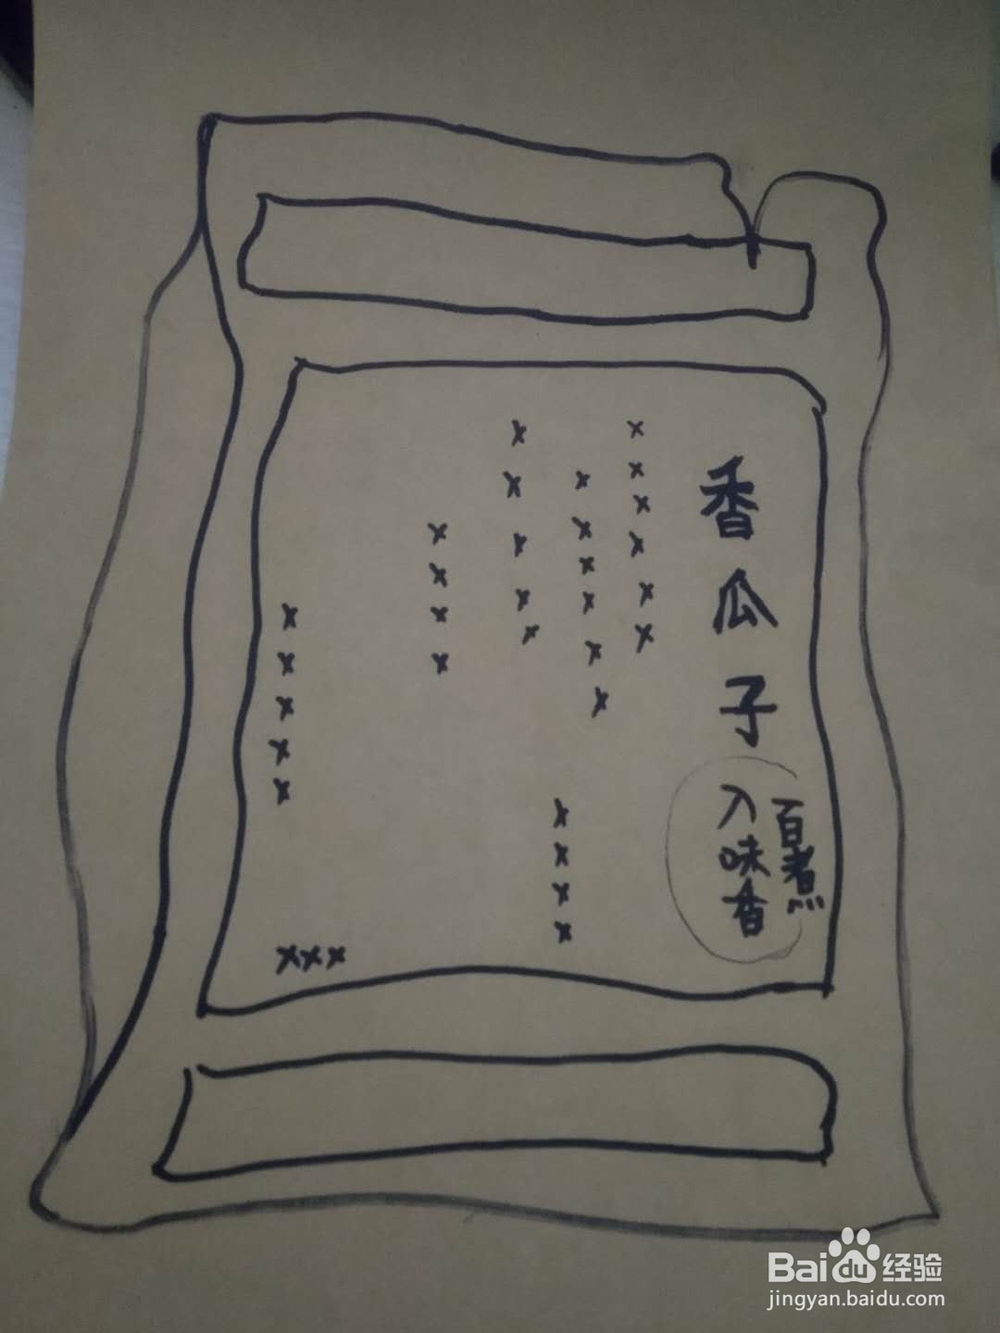 香瓜子
百煮
入味香
××××××
××××××
×××××
××××
×××××
××××
×××
Baidu经验
jingyan.baidu.com